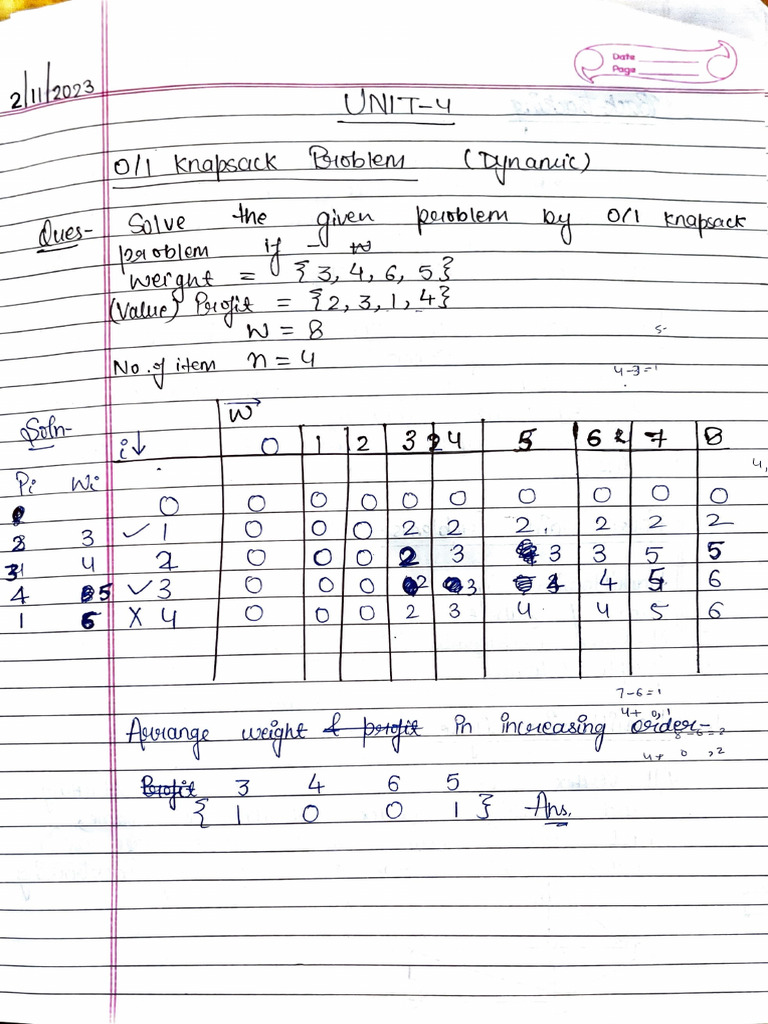 Date
Page
2/11/2023
UNIT-4
0/1 Knapsack Problem (Dynamic)
Ques- Solve the given problem by 0/1 knapsack
problem if -
Weight = {3, 4, 6, 5}
(Value) Profit = {2, 3, 1, 4}
W = 8
No. of item n = 4
4-3=1
Soln- W
i↓ 0 1 2 3 4 5 6 7 8
Pi Wi
0 0 0 0 0 0 0 0 0 0
2 3 ✓ 1 0 0 0 2 2 2 2 2 2
3 4 2 0 0 0 2 3 3 3 5 5
4 5 ✓ 3 0 0 0 2 3 4 4 5 6
1 6 X 4 0 0 0 2 3 4 4 5 6
7-6=1
4+ 0,1
Arrange weight & profit in increasing order-
4+ 0 ,2
Profit 3 4 6 5
{ 1 0 0 1 } Ans.